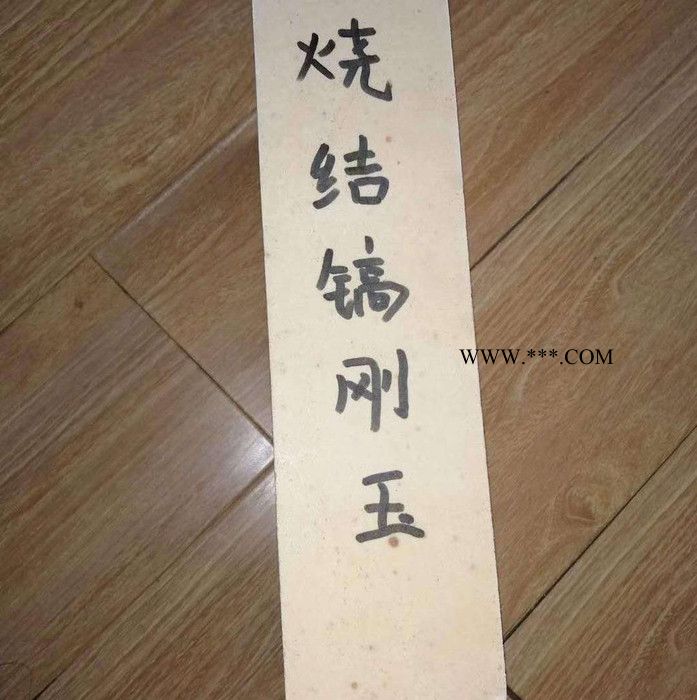 烧结镐刚玉
WWW.***.COM